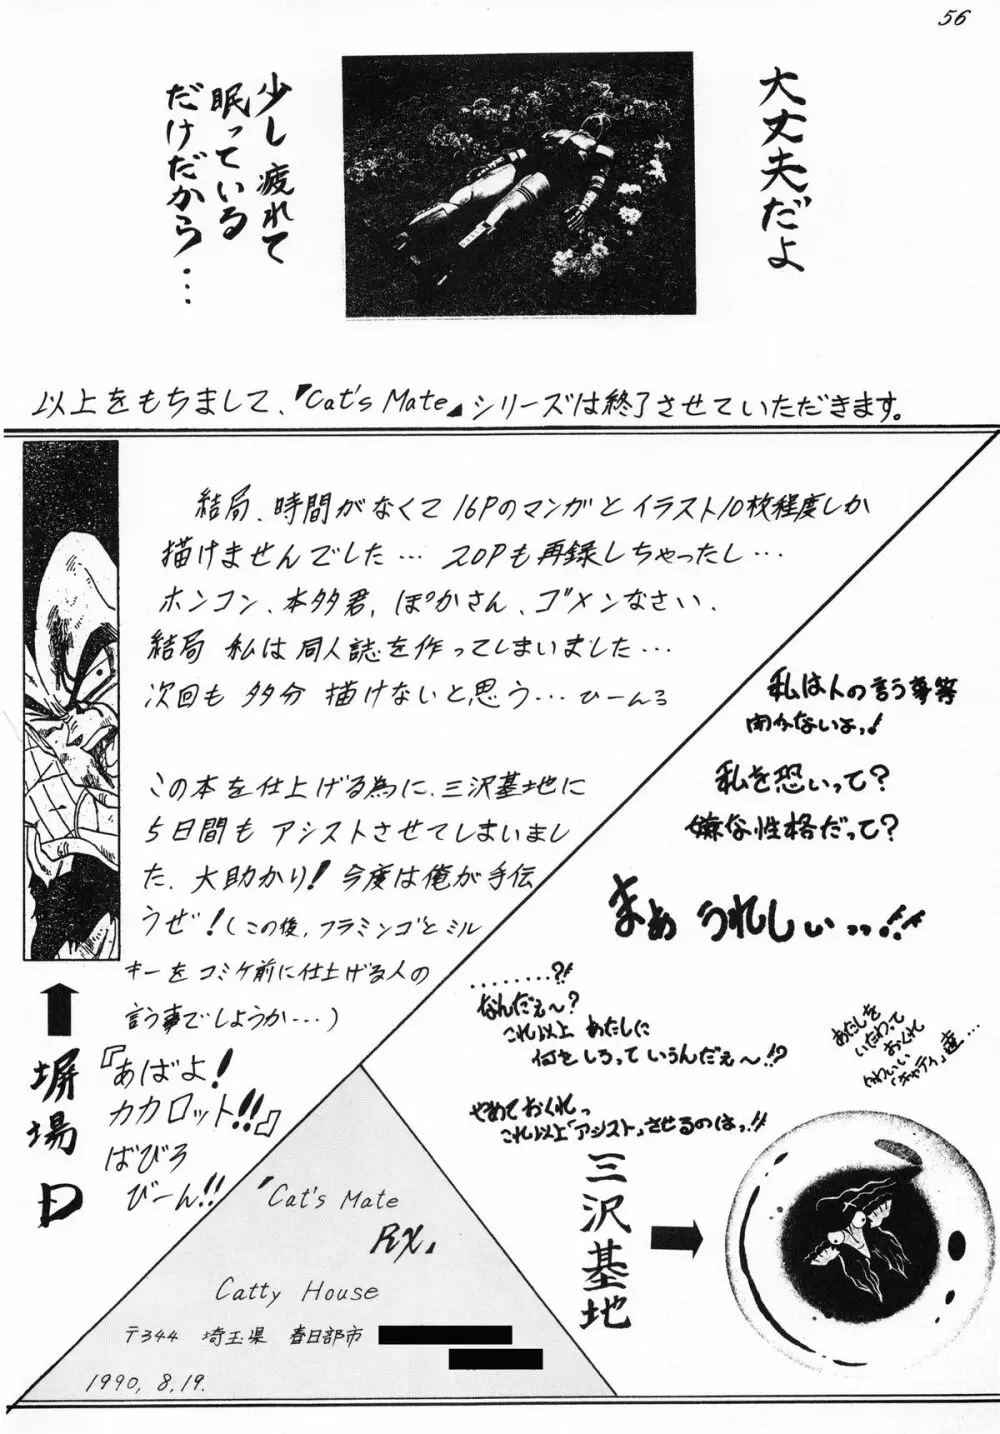 56
大丈夫だよ
少し疲れて
眠っている
だけだから・・・
以上をもちまして、『Cat's Mate』シリーズは終了させていただきます。
結局、時間がなくて16Pのマンガとイラスト10枚程度しか
描けませんでした… 20Pも再録しちゃったし…
ホンコン、本多君、ぽかさん、ゴメンなさい、
結局 私は同人誌を作ってしまいました…
次回も 多分 描けないと思う… ひーんろ
この本を仕上げる為に、三沢基地に
5日間もアシストさせてしまいまし
た、大助かり!今度は俺が手伝
うぜ!(この後、フラミンゴとミル
キーをコミケ前に仕上げる人の
言う事でしょうか…)
『あばよ!
カカロット!!』
ばびろ
びーん!!
塀場D
私は人の言う事等
聞かないよっ!
私を恐いって?
嫌な性格だって?
まぁ うれしぃっ!!
........?!
なんだぇ〜?
これ以上 あたしに
何をしろって いうんだぇ〜!?
やめておくれっ
これ以上「アシスト」させるのはっ!!
あたしを
いたわって
おくれ
かわいい
「キャティ」達…
三沢基地
『Cat's Mate
RX』
Catty House
〒344 埼玉県 春日部市
1990, 8, 19.